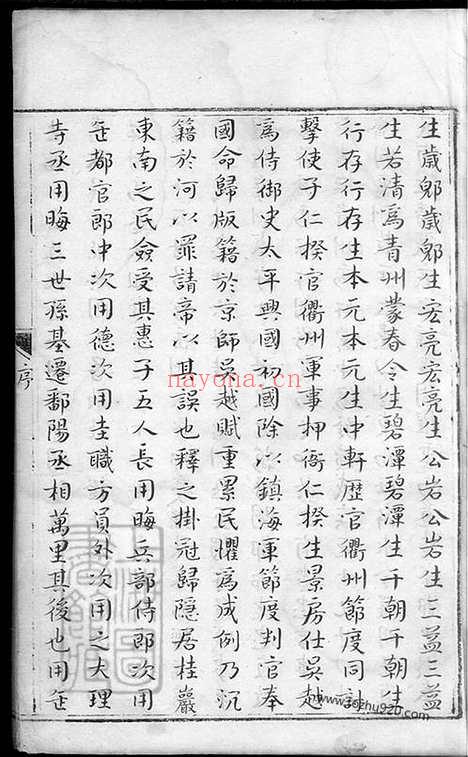 生歲鄋歲鄋生宏亮宏亮生公岩公岩生三益三益
生若清爲青州蒙春令生碧潭碧潭生千朝千朝生
行存行存生本元本元生中軒歴官衢州節度同計
擊使子仁揆官衢州軍事押衙仁揆生景房仕吳越
爲侍御史太平興國初國除以鎮海軍節度判官奉
國命歸版籍於京師吳越賦重累民懼爲成例乃沉
籍於河以罪請帝以其誤也釋之掛冠歸隱居桂巖
東南之民僉受其惠子五人長用晦兵部侍郎次用
都官郎中次用德次用圭職方員外次用之大理
寺丞用晦三世孫基遷鄱陽丞相萬里其後也用
序
nayona.cn